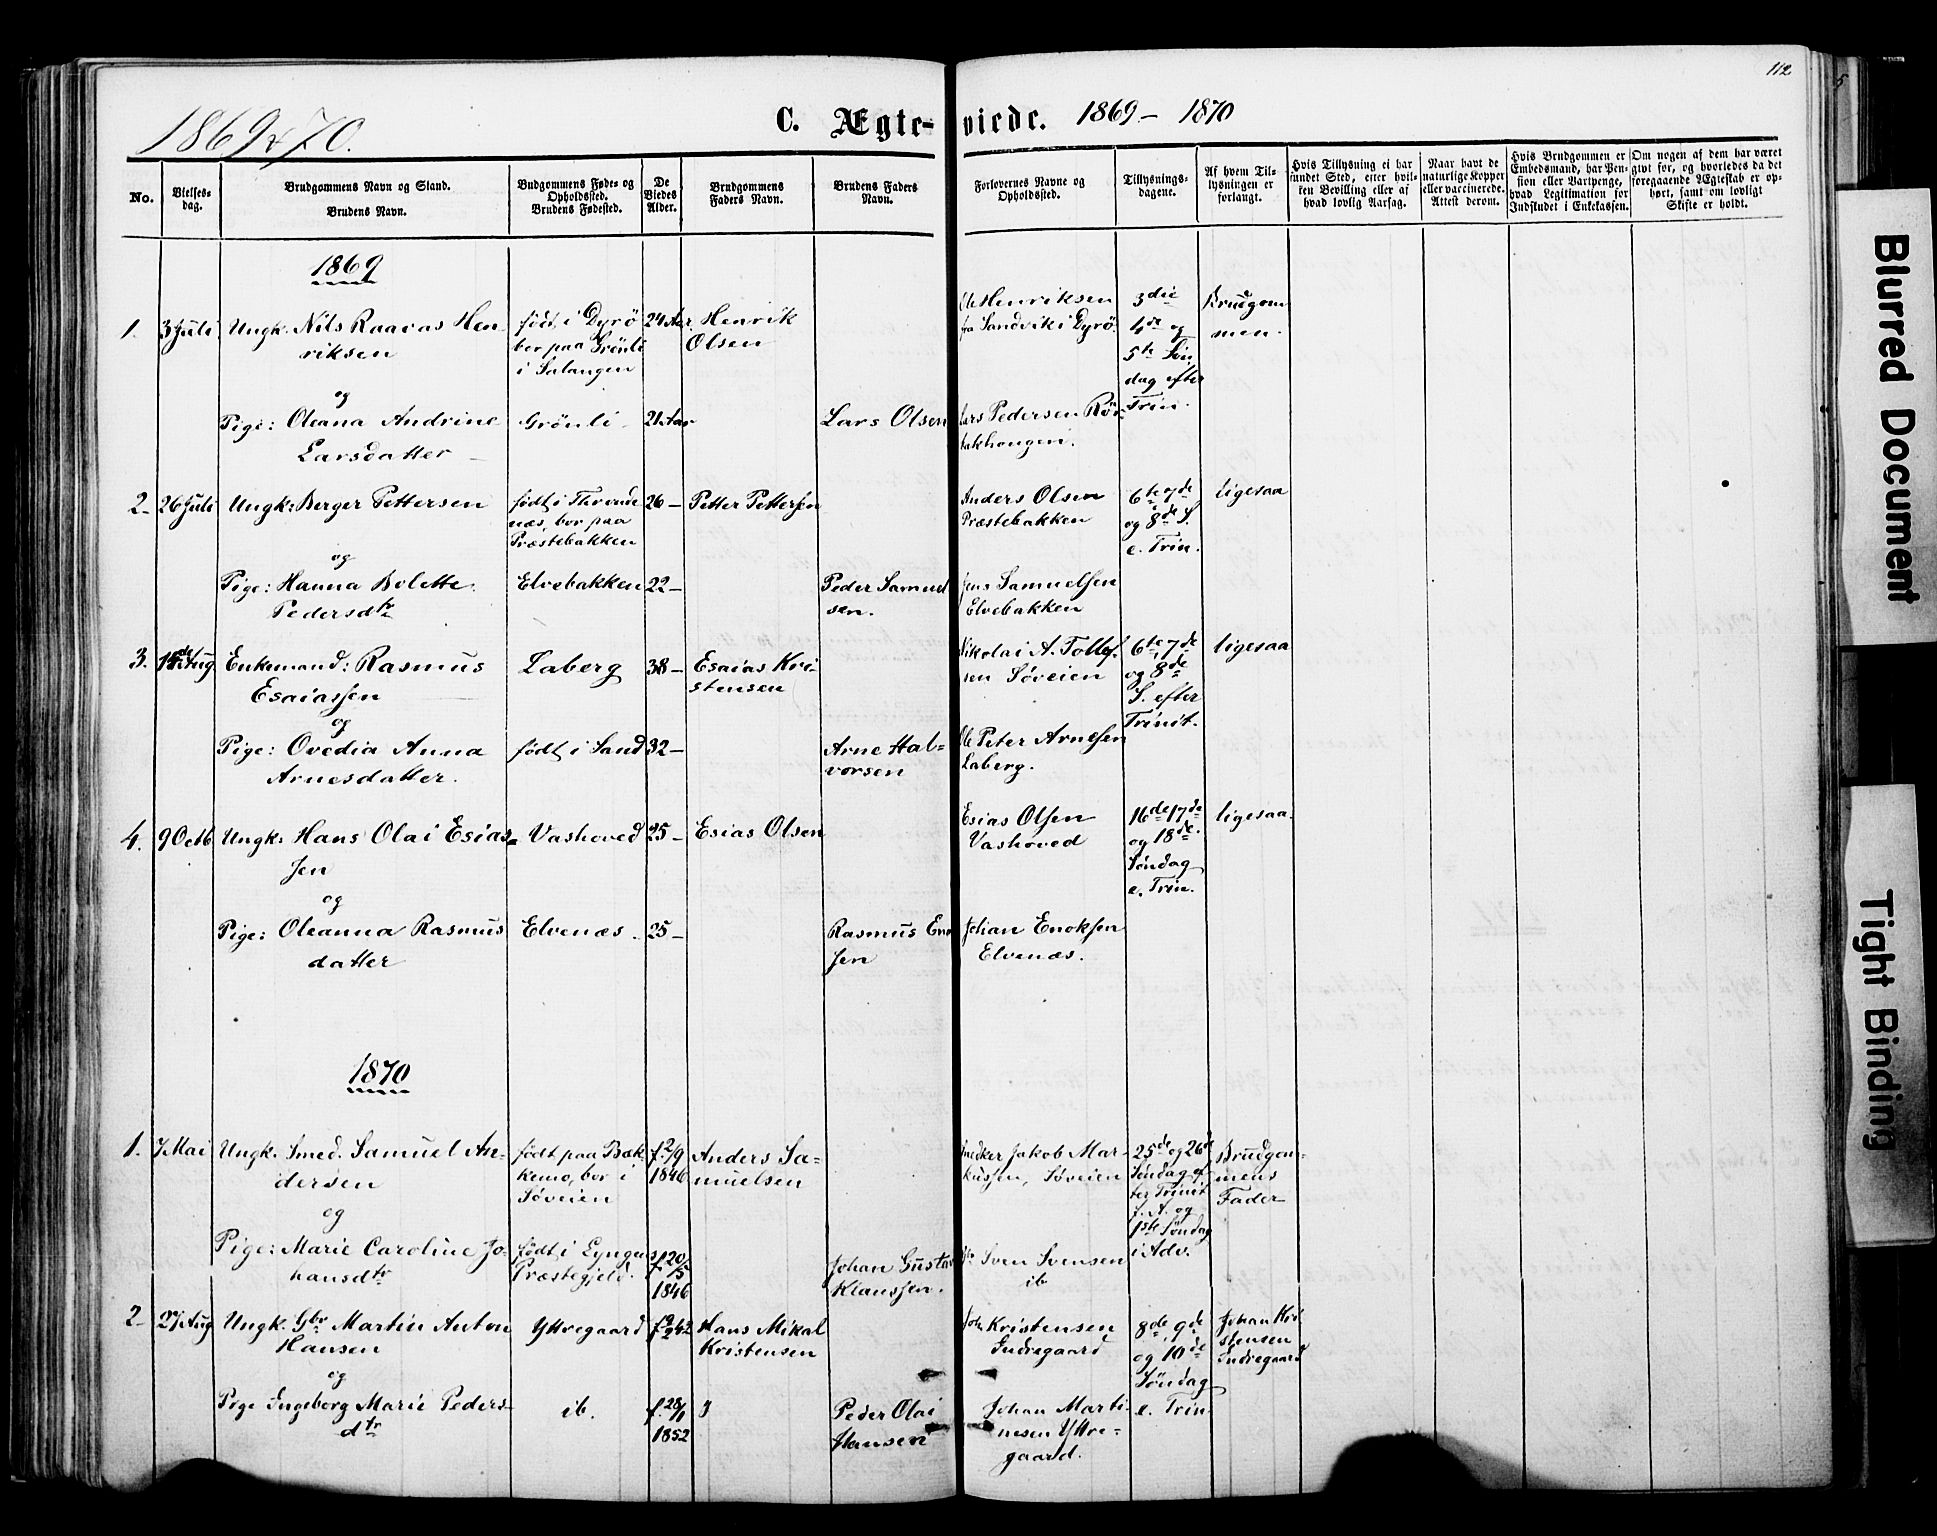 112
1869 & 70.
C. Ægte-viede. 1869 – 1870
No.
Vielses-
dag.
Brudgommens Navn og Stand.
Brudens Navn.
Budgommens Føde- og
Opholdssted.
Brudens Fødested.
De
Viedes
Alder.
Brudgommens
Faders Navn.
Brudens Faders
Navn.
Forlovernes Navne og
Opholdssted.
Tillysnings-
dagene.
Af hvem Til-
lysningen er
forlangt.
Hvis Tillysning ei har
fundet Sted, efter hvil-
ken Bevilling eller af
hvad lovlig Aarsag.
Naar havt de
naturlige Kopper
eller vaccinerede.
Attest derom.
Hvis Brudgommen er
Embedsmand, har Pen-
sion eller Vartpenge,
hvad Legitimation for
Indskudet i Enkekassen.
Om nogen af dem har været
givt før, og hvorledes da det
foregaaende Ægteskab er op-
hørt, samt om lovligt
Skifte er holdt.
1869
1. 3 Juli
Ungk. Nils Raavas Hen-
riksen
født i Dyrö
bor paa Grönli
i Salangen
24 Aar
Henrik
Olsen
Ole Henriksen
fra Sandvik i Dyrö
3die
4de og
5te Søn
dag efter
Trin.
Brudgom
men.
og
Pige: Oleana Andrine
Larsdatter
Grönli
21 Aar
Lars Olsen
Lars Pedersen Rör-
bakhaugen.
2. 26 Juli
Ungk: Berger Pettersen
født i Thronde
næs, bor paa
Præstebakken
26 –
Petter Pettersen
Anders Olsen
Præstebakken
6te 7de
og 8de S.
e. Trin.
ligesaa
og
Pige: Hanna Bolette
Pedersdtr
Elvebakken
22 –
Peder Samuel
sen.
Jens Samuelsen
Elvebakken
3. Aug
Enkemand: Rasmus
Esaiassen
Laberg
38 –
Esaias Kri-
stensen
Nikolai A. Tollef-
sen Söveien
6te, 7de
og 8de
S. efter
Trinit.
ligesaa
og
Pige: Ovedia Anna
Arnesdatter.
født i Sand
32 –
Arne Hal-
vorsen
Ole Peter Arnesen
Laberg.
4. 9 Octb
Ungk: Hans Olai Esias-
sen
Vashoved
25 –
Esias Olsen
Esias Olsen
Vashoved
16de 17de
og 18de
Søndag
e. Trin.
ligesaa.
og
Pige: Oleanna Rasmus
datter
Elvenæs.
25 –
Rasmus Eno
sen
Johan Enoksen
Elvenæs.
1870
1. 7 Mai
Ungk. Smed. Samuel An-
dersen
født paa Bak-
kemo, bor i
Söveien
f. 2/9
1846
Anders Sa-
muelsen
Jakob Mar-
kussen, Söveien
25de og 26de
Søndag ef
ter Trinit
f. A. og
1ste Søndag
i Adv.
Brudgom-
mens
Fader
og
Pige: Marie Caroline Jo-
hansdtr
født i Lyngens
Præstegjeld.
f 20/5
1846
Johan Gustav
Klaussen.
Sven Svensen
ib
2. 27 Aug
Ungk. Gbr Martin Anton
Hansen
Yttregaard
Hans Mikal
Kristensen
Joh Kristensen
Indregaard
8de, 9de
og 10de
Søndag
e. Trin
Johan Kri
stensen
Indregaard
og
Pige Ingeborg Marie Peders-
dtr
ib.
f. 28/1
1852
Peder Olai
Hansen
Johan Marti-
nesen Yttre-
gaard.
Blurred Document
Tight Binding